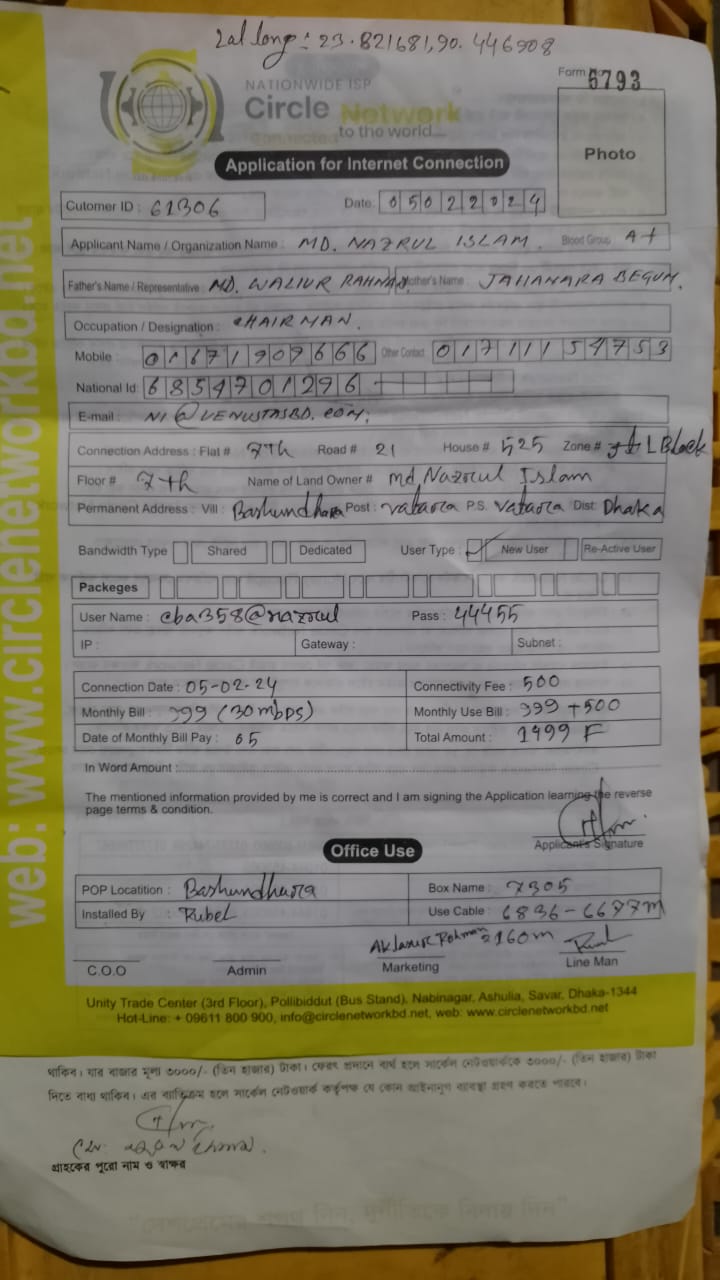 Lal long : 23.821681,90.446908
Form No 6793
NATIONWIDE ISP
Circle Network
Connected to the world...
Photo
Application for Internet Connection
Cutomer ID : 61306 Date: 05022024
Applicant Name / Organization Name : MD. NAZRUL ISLAM. Blood Group A+
Father's Name / Representative : MD. WALIUR RAHMAN Mother's Name : JAHANARA BEGUM.
Occupation / Designation : CHAIRMAN.
Mobile : 01671909666 Other Contact 01711154753
National Id: 6854701296
E-mail : NI@VENUSTASBD.COM.
Connection Address : Flat # 7th Road # 21 House # 525 Zone # L Block
Floor # 7th Name of Land Owner # Md, Nazrul Islam
Permanent Address : Vill : Bashundhara Post : Vatara P.S. Vatara Dist: Dhaka
Bandwidth Type Shared Dedicated User Type : New User Re-Active User
Packeges
User Name : cba358@nazrul Pass : 44455
IP : Gateway : Subnet :
Connection Date : 05-02-24 Connectivity Fee : 500
Monthly Bill : 999 (30mbps) Monthly Use Bill : 999 +500
Date of Monthly Bill Pay : 05 Total Amount : 1499
In Word Amount :
The mentioned information provided by me is correct and I am signing the Application learning the reverse
page terms & condition.
Applicant's Signature
Office Use
POP Locatition : Bashundhara Box Name : 7305
Installed By : Rubel Use Cable : 6836-6677m
160m
C.O.O Admin Marketing Line Man
Unity Trade Center (3rd Floor), Pollibiddut (Bus Stand), Nabinagar, Ashulia, Savar, Dhaka-1344
Hot-Line: + 09611 800 900, info@circlenetworkbd.net, web: www.circlenetworkbd.net
web: www.circlenetworkbd.net
থাকিব। যার বাজার মূল্য ৩০০০/- (তিন হাজার) টাকা। ফেরৎ প্রদানে ব্যর্থ হলে সার্কেল নেটওয়ার্ককে ৩০০০/- (তিন হাজার) টাকা
দিতে বাধ্য থাকিব। এর ব্যতিক্রম হলে সার্কেল নেটওয়ার্ক কর্তৃপক্ষ যে কোন আইনানুগ ব্যবস্থা গ্রহণ করতে পারবে।
গ্রাহকের পুরো নাম ও স্বাক্ষর